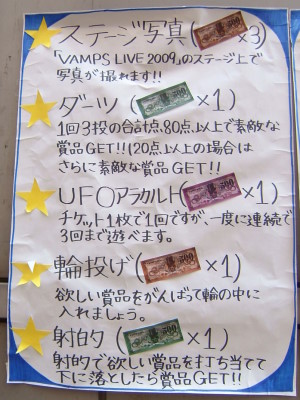 ステージ写真(×3)
「VAMPS LIVE 2009」のステージ上で
写真が撮れます!!
ダーツ(×1)
1回3投の合計点、80点以上で素敵な
賞品GET!!(20点以上の場合は
さらに素敵な賞品GET!!!
UFOアラカルト(×1)
チケット1枚で1回ですが、一度に連続で
3回まで遊べます。
輪投げ(×1)
欲しい賞品をがんばって輪の中に
入れましょう。
射的(×1)
射的で欲しい賞品を打ち当てて
下に落としたら賞品GET!!